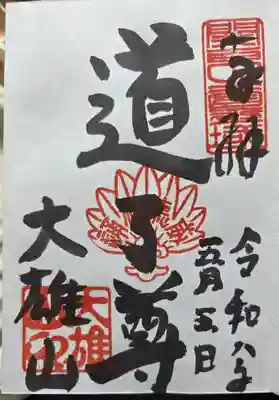 奉拝
令和八年
五月五日
道了尊
大雄山